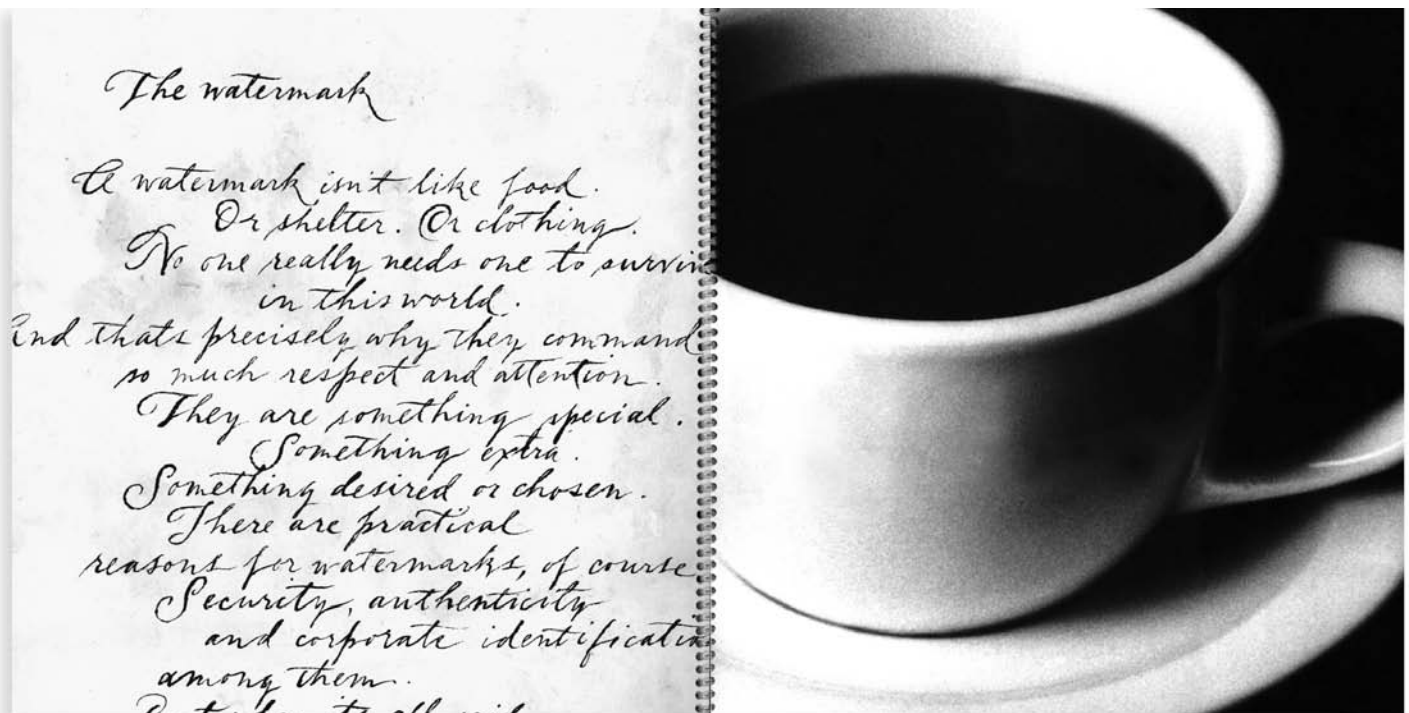 The watermark
A watermark isn't like food.
Or shelter. Or clothing.
No one really needs one to surviv
in this world.
And thats precisely why they command
so much respect and attention.
They are something special.
Something extra.
Something desired or chosen.
There are practical
reasons for watermarks, of course
Security, authenticity
and corporate identificatio
among them.